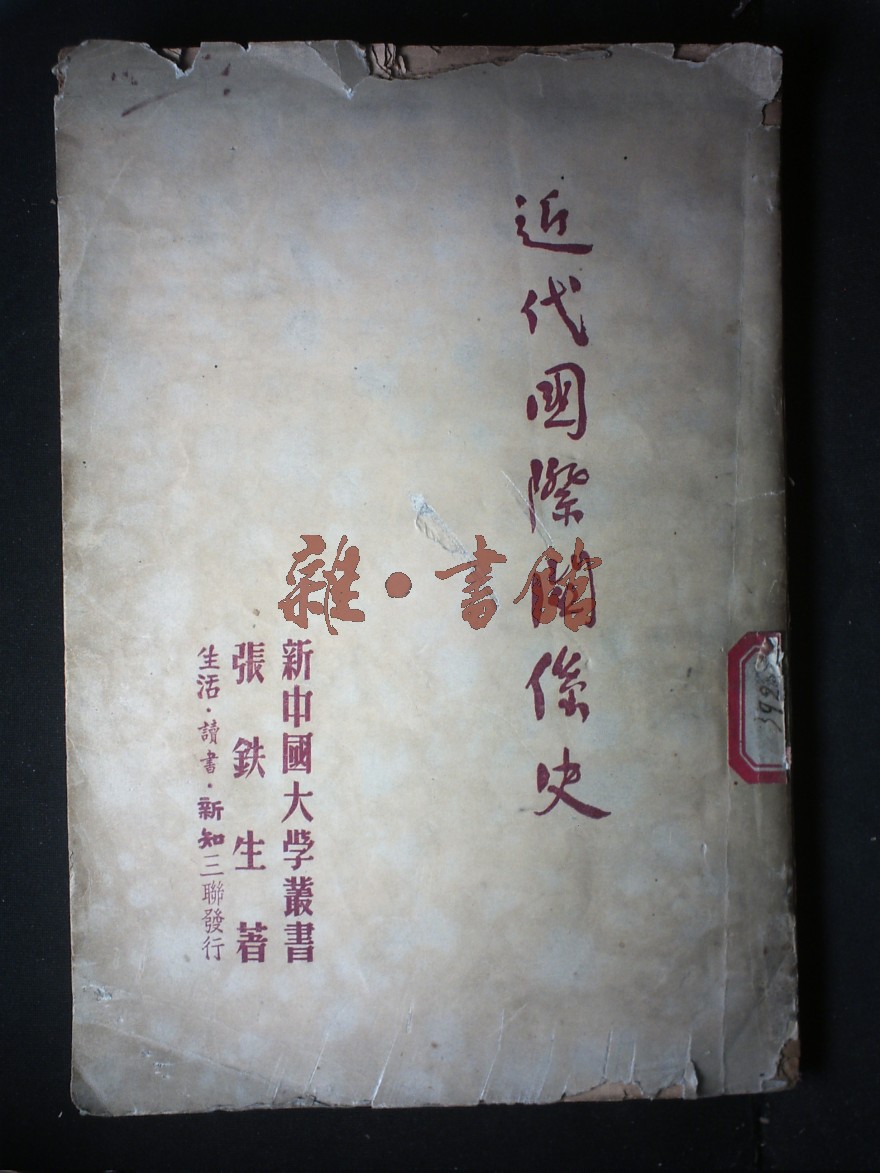 近代國際關係史
新中國大学叢書
張鉄生著
生活·讀書·新知三聯發行
雜·書館